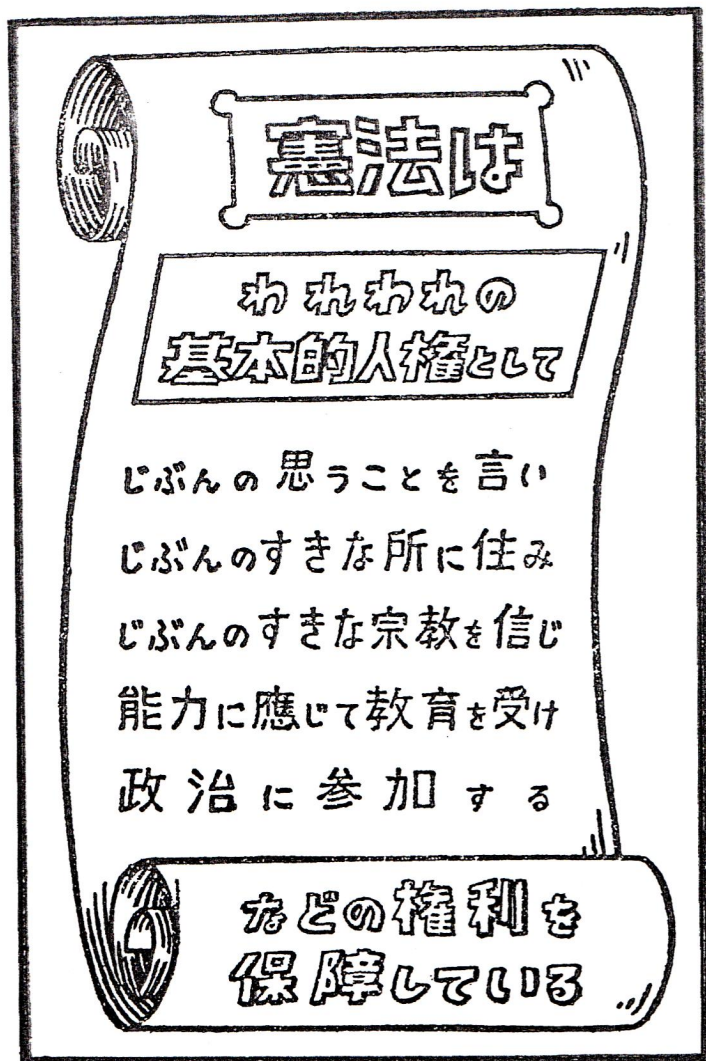 憲法は
われわれの
基本的人権として
じぶんの思うことを言い
じぶんのすきな所に住み
じぶんのすきな宗教を信じ
能力に應じて教育を受け
政治に参加する
などの権利を
保障している